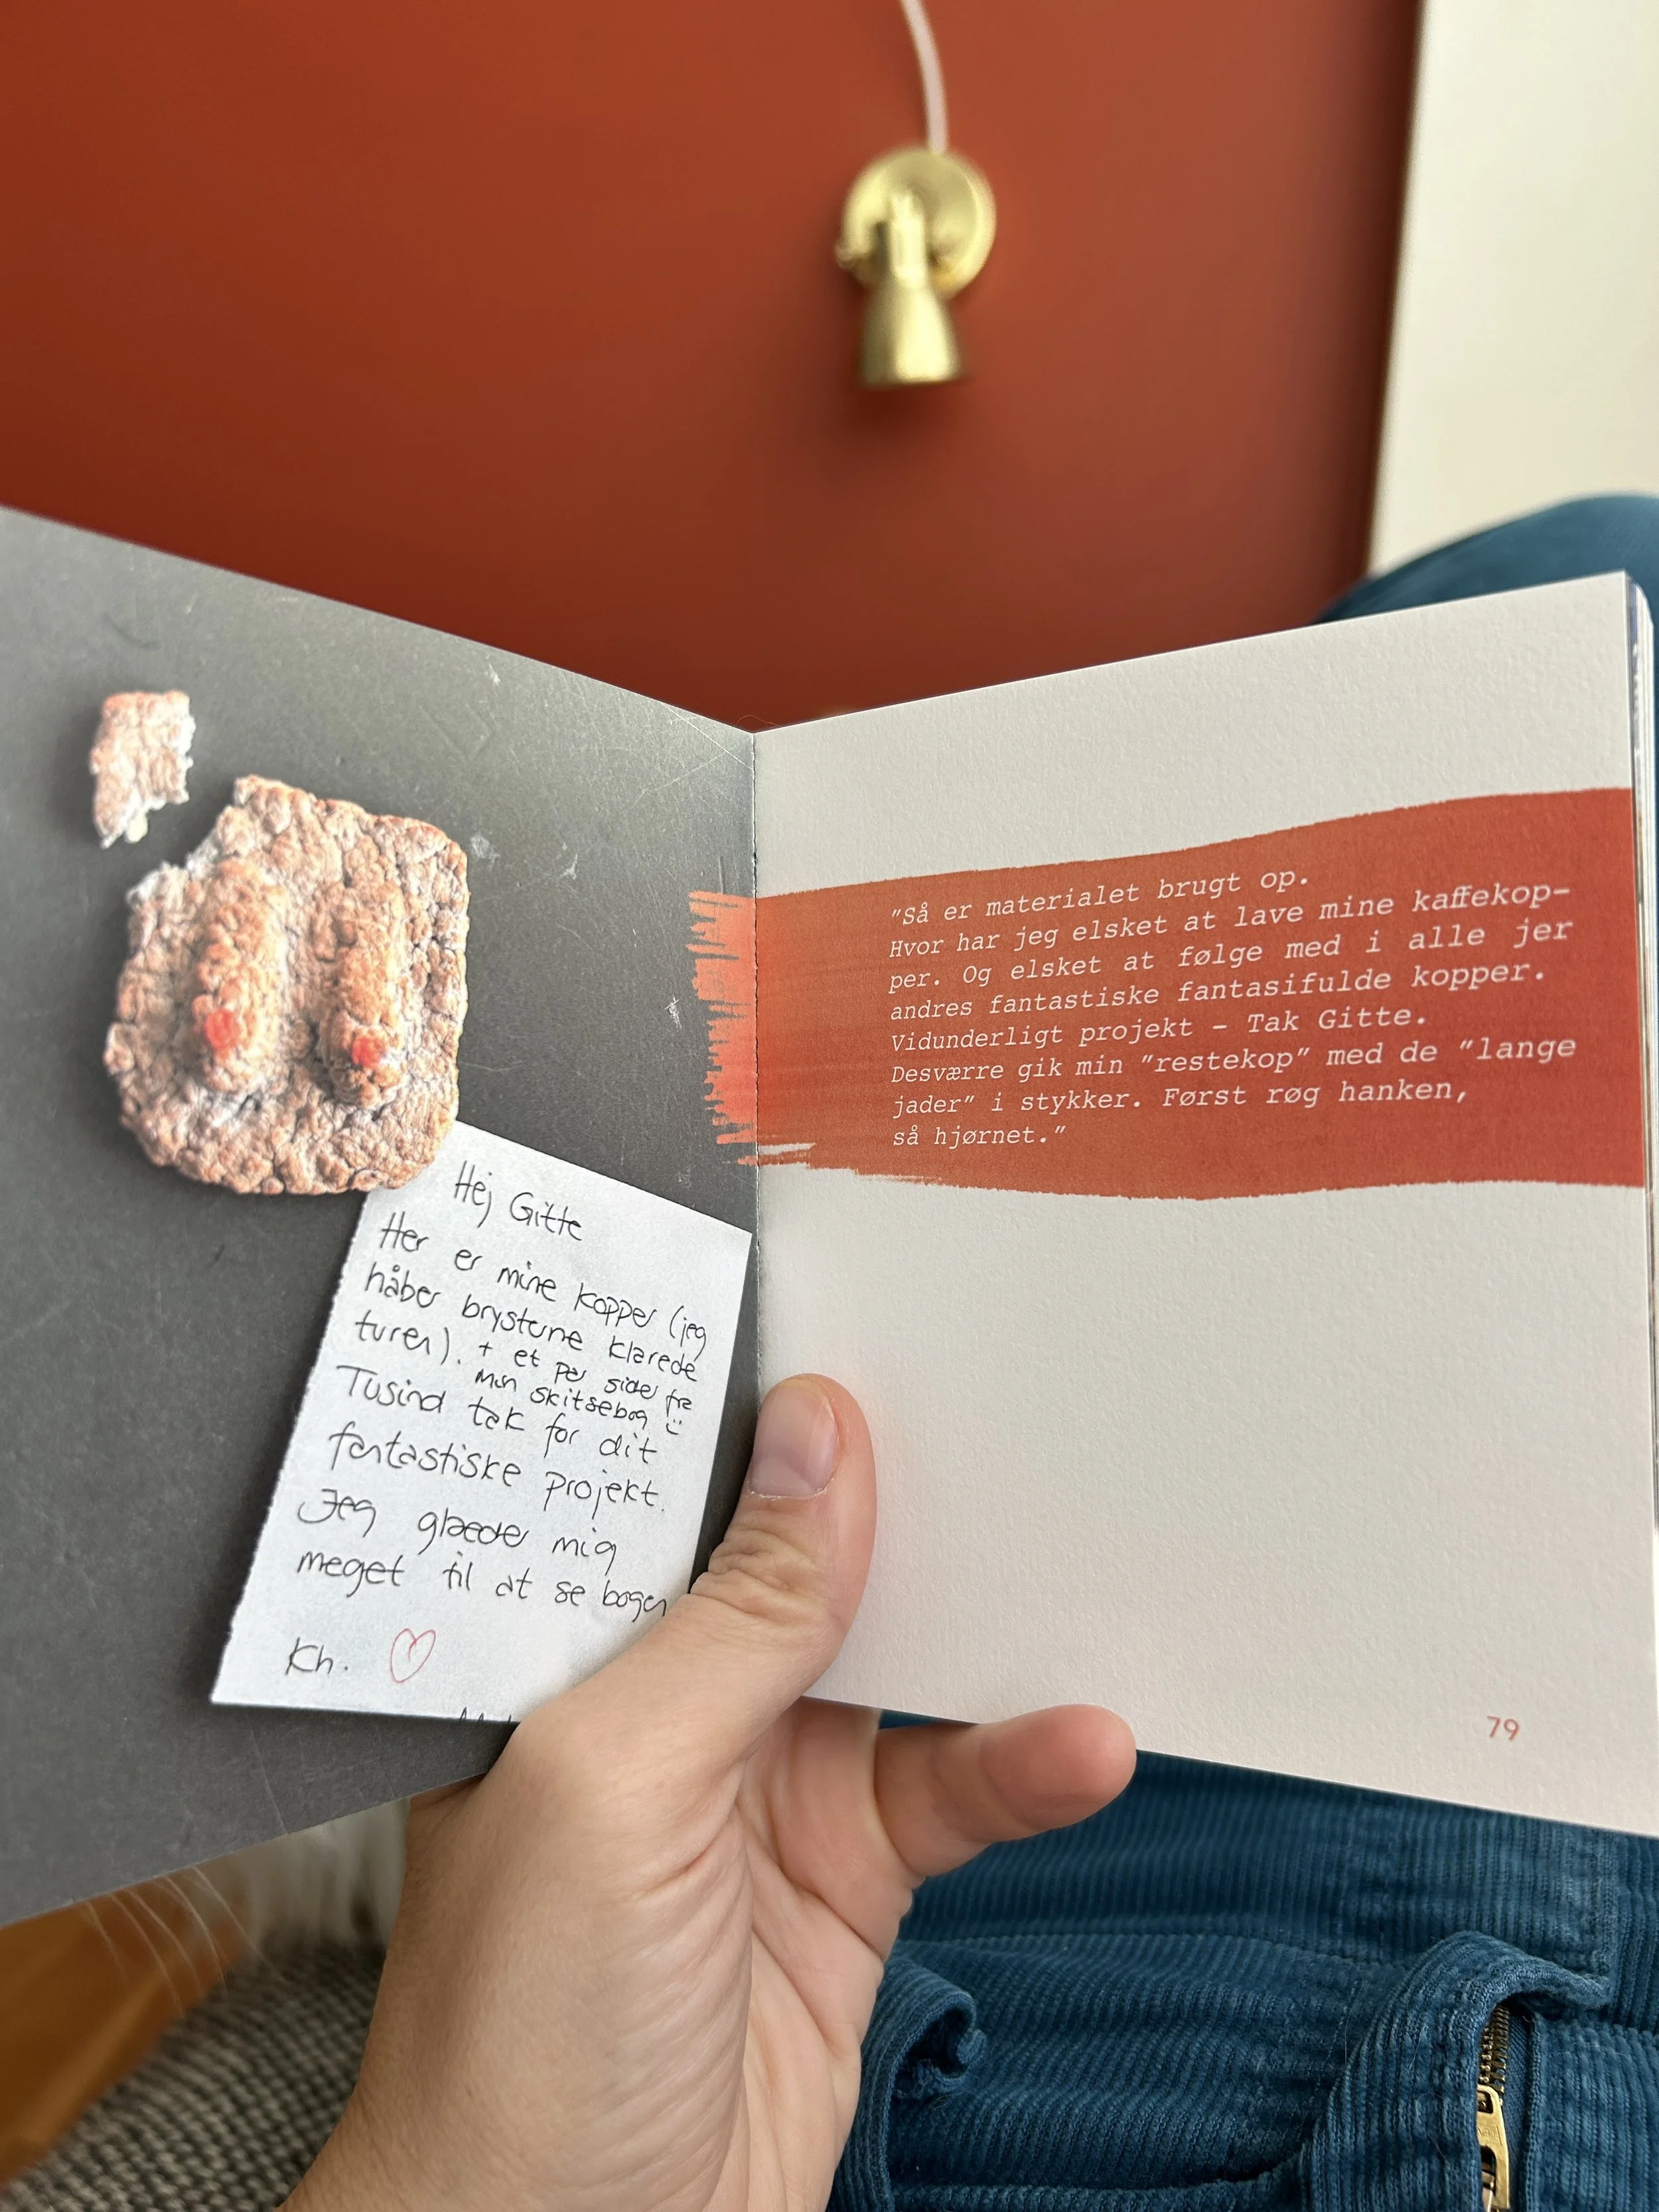 Hej Gitte
Her er mine kopper (jeg
håber brysterne klarede
turen). + et par sider fra
min skitsebog :)
Tusind tak for dit
fantastiske projekt.
Jeg glæder mig
meget til at se bogen
Kh.
"Så er materialet brugt op.
Hvor har jeg elsket at lave mine kaffekop-
per. Og elsket at følge med i alle jer
andres fantastiske fantasifulde kopper.
Vidunderligt projekt – Tak Gitte.
Desværre gik min "restekop" med de "lange
jader" i stykker. Først røg hanken,
så hjørnet."
79